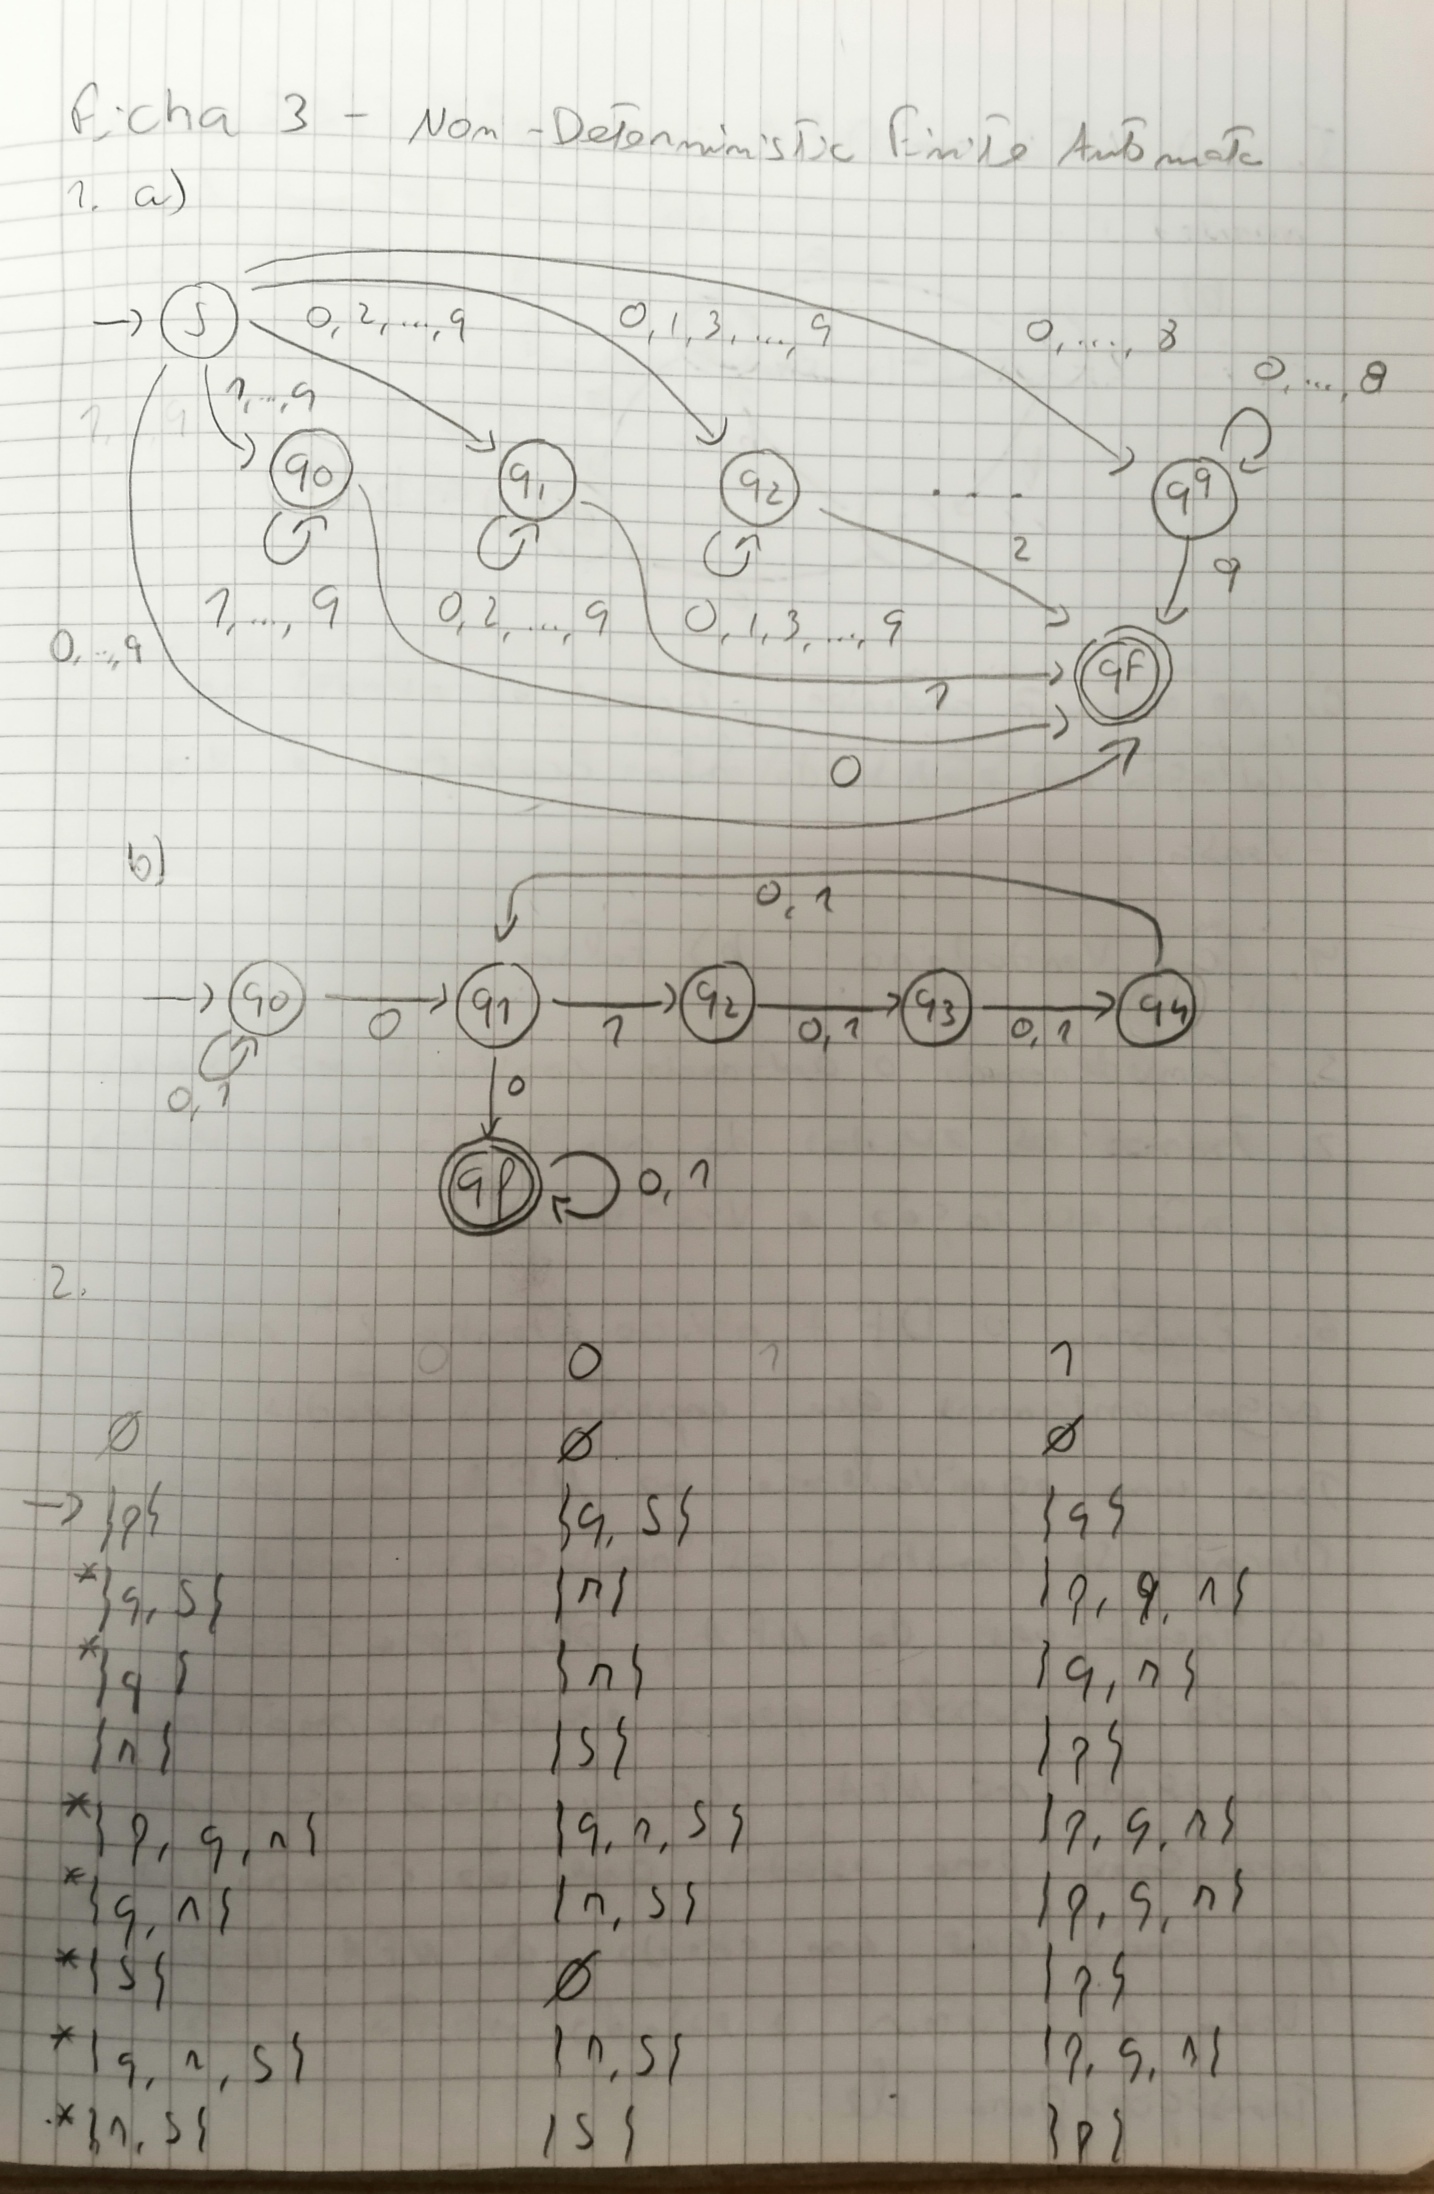 Ficha 3 - Non-Deterministic Finite Automata
1. a)
S
0, 2, ..., 9
0, 1, 3, ..., 9
0, ...., 8
0, ..., 8
1, ..., 9
q0
q1
q2
. . .
q9
2
9
1, ..., 9
0, 2, ..., 9
0, 1, 3, ..., 9
0, ..., 9
qf
1
0
b)
0, 1
q0
0
q1
1
q2
0, 1
q3
0, 1
q4
0, 1
0
qf
0, 1
2.
0 1
∅ ∅ ∅
→ {p} {q, s} {q}
*{q, s} {r} {p, q, r}
*{q} {r} {q, r}
{r} {s} {p}
*{p, q, r} {q, r, s} {p, q, r}
*{q, r} {r, s} {p, q, r}
*{s} ∅ {p}
*{q, r, s} {r, s} {p, q, r}
*{r, s} {s} {p}